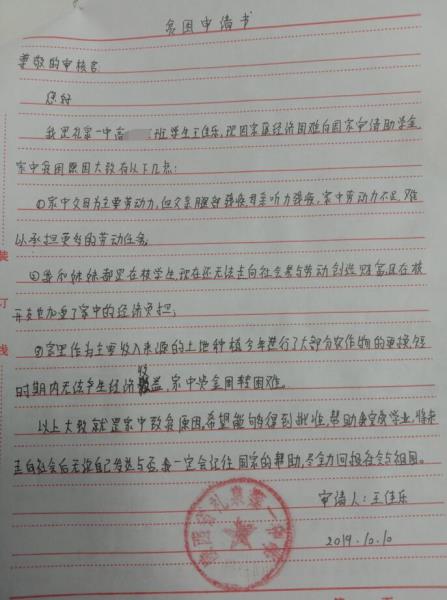 贫困申请书
尊敬的审核官:
您好
我是礼泉一中高 班学生王佳乐,现因家庭经济困难向国家申请助学金,
家中贫困原因大致有以下几点:
①家中父母为主要劳动力,但父亲腿部残疾,母亲听力残疾,家中劳动力不足,难
以承担更多的劳动任务
②我和妹妹都是在校学生,现在还无法走向社会参与劳动创造财富,且在校
开支也加重了家中的经济负担;
③家里作为主要收入来源的土地种植今年进行了大部分农作物的更换,短
时期内无法产生经济收益,家中资金周转困难。
以上大致就是家中致贫原因,希望能够得到批准,帮助我完成学业,将来
走向社会后无论自己发达与否,我一定会记住国家的帮助,尽全力回报社会与祖国。
申请人:王佳乐
2019.10.10
陕西省礼泉第一中学
装
订
线